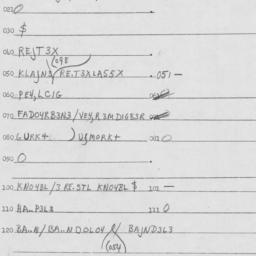 020 0
030 $
040 REJT3X .
(098
050 KLAJN3/RE.T3XLASSX . 051 —
060 PEY,LCIG
070 FADO4RB3N3/VEY,R3MDIGESR
080 GURK+ )
090 0
100 KNO4BL/3RE.STL KNO4BL $ 101 —
110 HA..P3L8 111 0
120 BA..N/BA..NDOLO4 // BAJND3L3
(054)